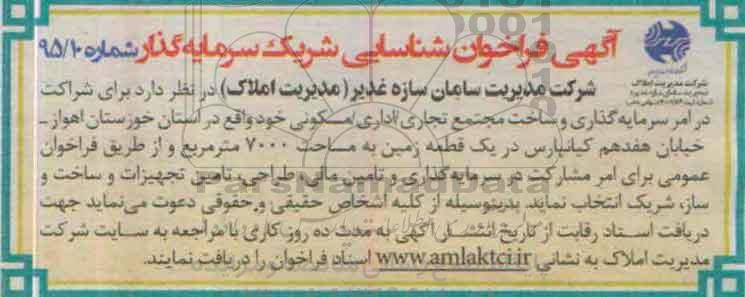 آگهی فراخوان شناسایی شریک سرمایه گذار شماره ۹۵/۱۰
شرکت مدیریت املاک
شرکت مدیریت سامان سازه غدیر (مدیریت املاک) در نظر دارد برای شراکت
در امر سرمایه گذاری و ساخت مجتمع تجاری/اداری/مسکونی خود واقع در استان خوزستان اهواز ـ
خیابان هفدهم کیانپارس در یک قطعه زمین به مساحت ۷۰۰۰ مترمربع و از طریق فراخوان
عمومی برای امر مشارکت در سرمایه گذاری و تامین مالی، طراحی، تامین تجهیزات و ساخت و
ساز، شریک انتخاب نماید. بدینوسیله از کلیه اشخاص حقیقی و حقوقی دعوت می نماید جهت
دریافت اسناد رقابت از تاریخ انتشار آگهی به مدت ده روز کاری با مراجعه به سایت شرکت
مدیریت املاک به نشانی www.amlaktci.ir اسناد فراخوان را دریافت نمایند.
ParsNamadData